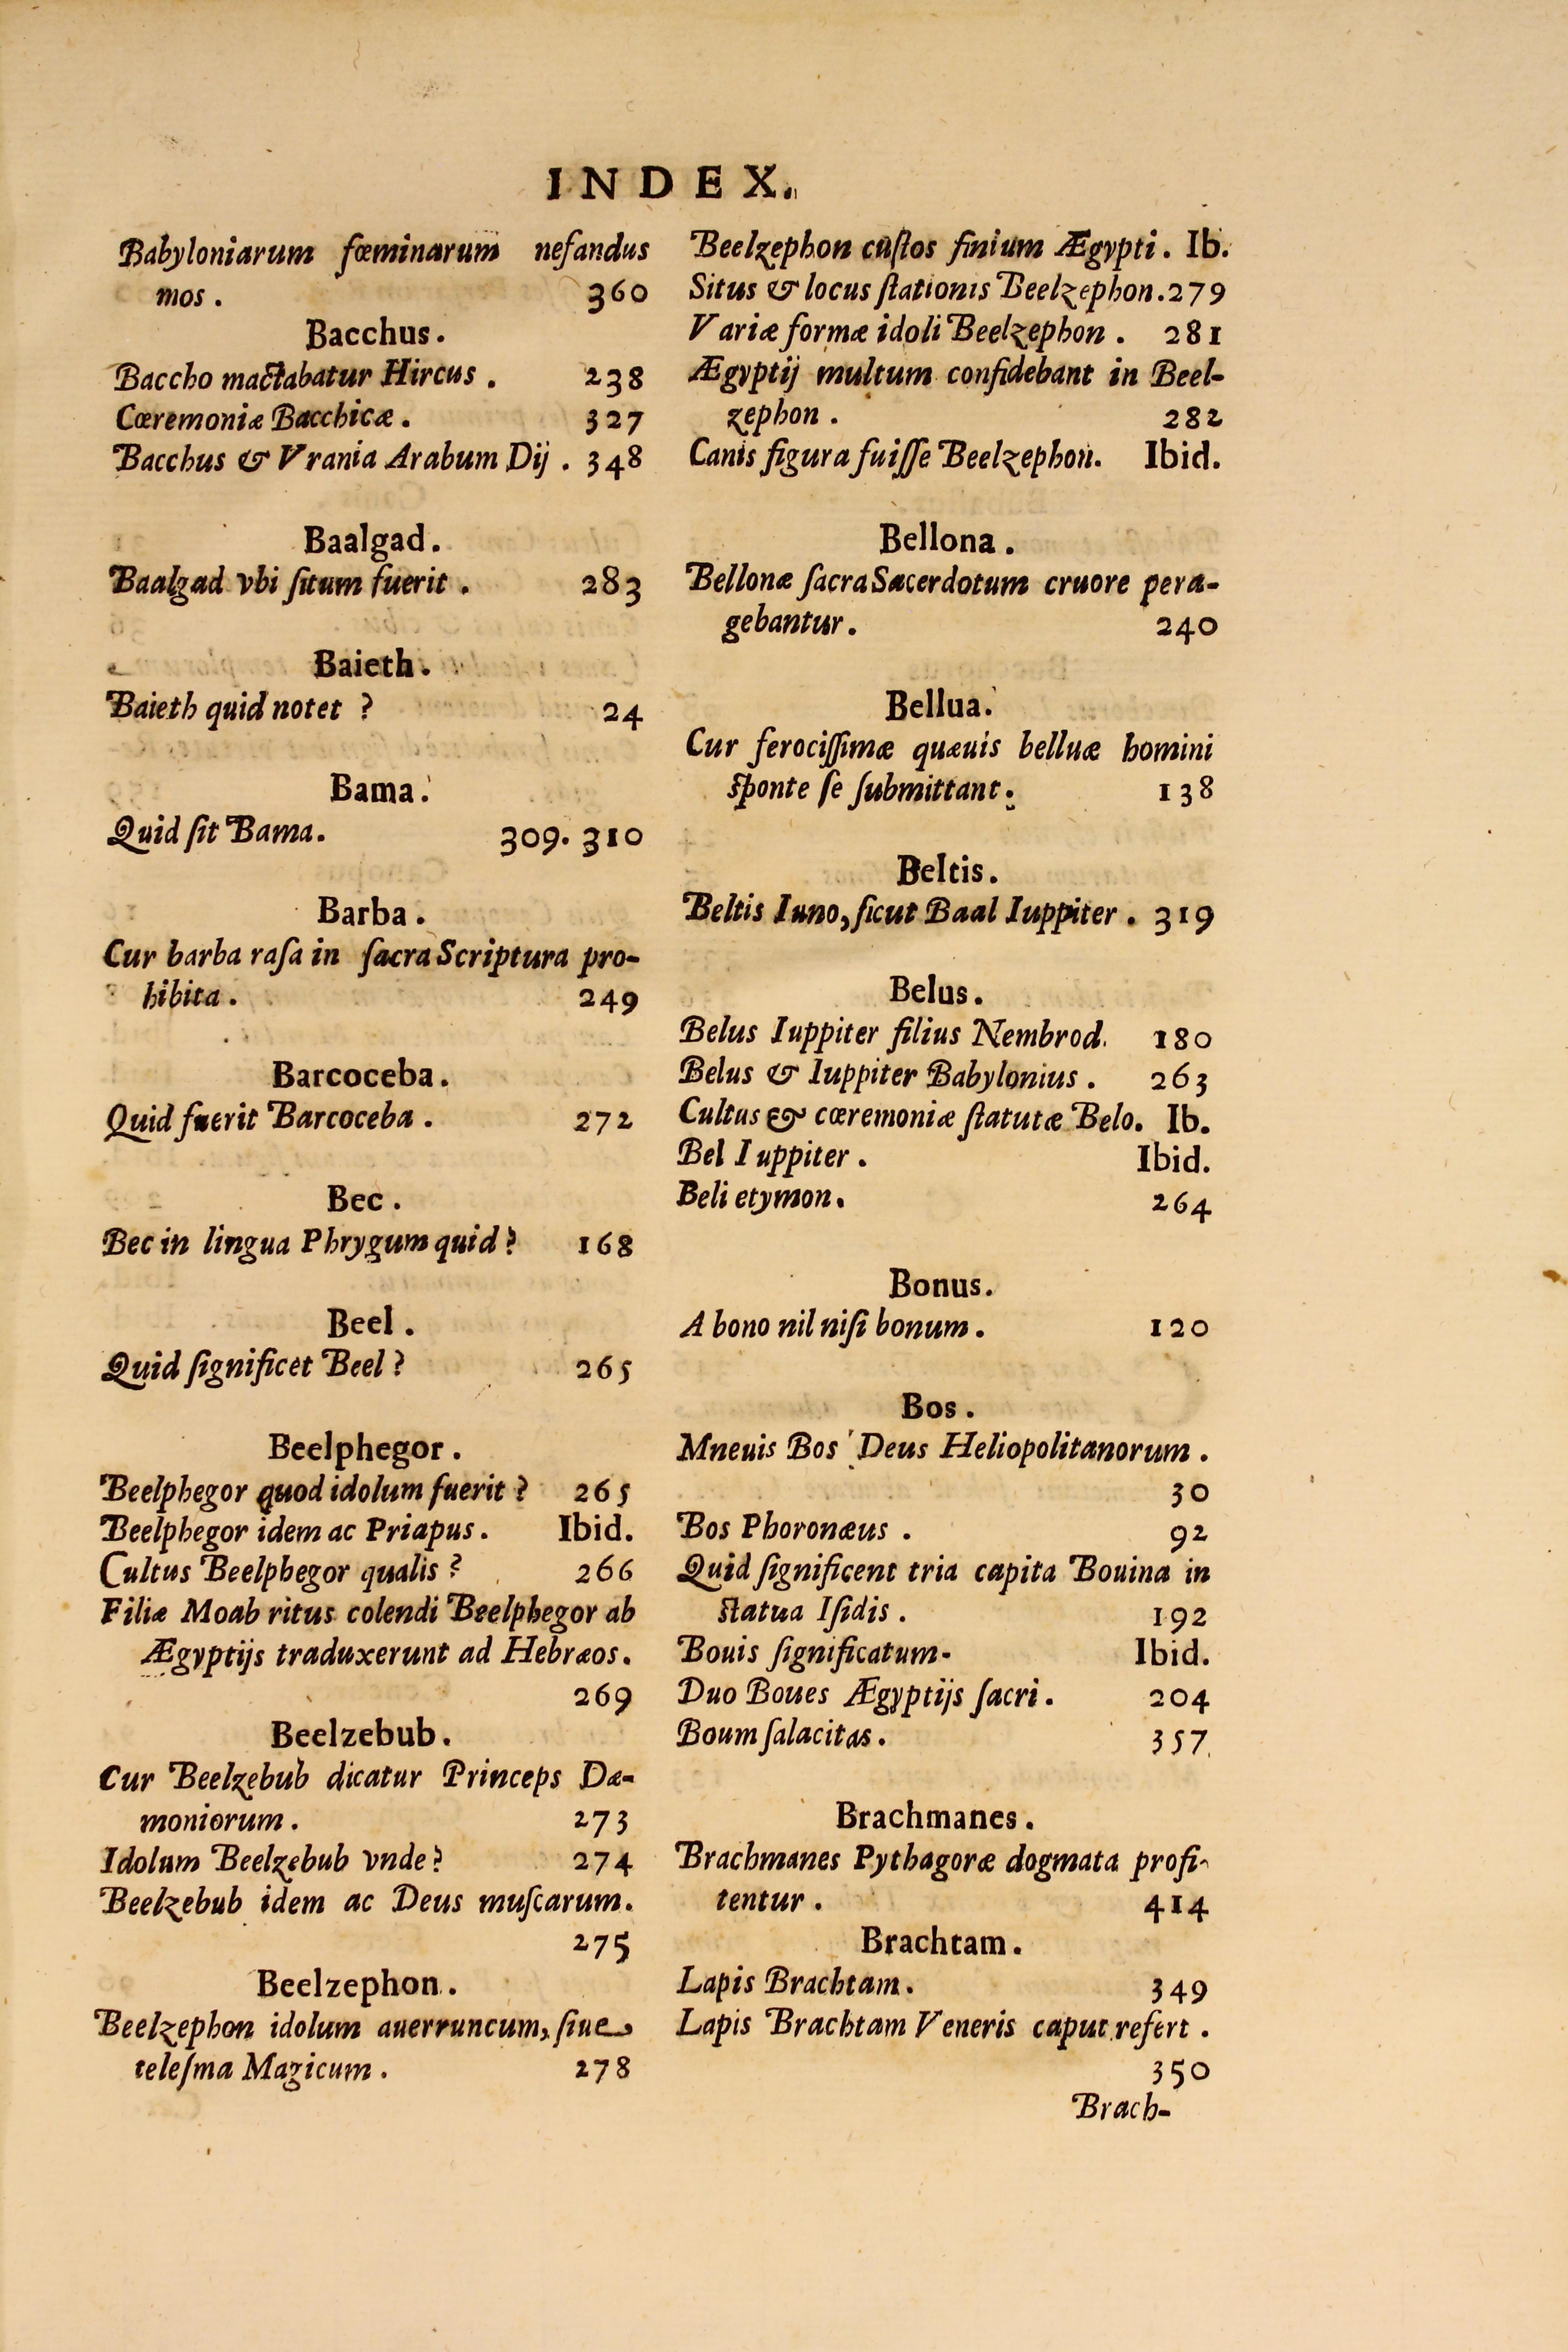 INDEX.
Babyloniarum fœminarum nefandus
mos. 360
Bacchus.
Baccho mactabatur Hircus. 238
Cœremoniæ Bacchicæ. 327
Bacchus & Vrania Arabum Dij. 348
Baalgad.
Baalgad vbi ſitum fuerit. 283
Baieth.
Baieth quid notet? 24
Bama.
Quid ſit Bama. 309. 310
Barba.
Cur barba raſa in ſacra Scriptura pro-
hibita. 249
Barcoceba.
Quid fuerit Barcoceba. 272
Bec.
Bec in lingua Phrygum quid? 168
Beel.
Quid ſignificet Beel? 265
Beelphegor.
Beelphegor quod idolum fuerit? 265
Beelphegor idem ac Priapus. Ibid.
Cultus Beelphegor qualis? 266
Filiæ Moab ritus colendi Beelphegor ab
Ægyptijs traduxerunt ad Hebræos.
269
Beelzebub.
Cur Beelzebub dicatur Princeps Dæ-
moniorum. 273
Idolum Beelzebub vnde? 274
Beelzebub idem ac Deus muſcarum.
275
Beelzephon.
Beelzephon idolum auerruncum, ſiue
teleſma Magicum. 278
Beelzephon cuſtos finium Ægypti. Ib.
Situs & locus ſtationis Beelzephon. 279
Variæ formæ idoli Beelzephon. 281
Ægyptij multum confidebant in Beel-
zephon. 282
Canis figura fuiſſe Beelzephon. Ibid.
Bellona.
Bellonæ ſacra Sacerdotum cruore pera-
gebantur. 240
Bellua.
Cur ferociſſimæ quæuis belluæ homini
ſponte ſe ſubmittant. 138
Beltis.
Beltis Iuno, ſicut Baal Iuppiter. 319
Belus.
Belus Iuppiter filius Nembrod. 180
Belus & Iuppiter Babylonius. 263
Cultus & cœremoniæ ſtatutæ Belo. Ib.
Bel Iuppiter. Ibid.
Beli etymon. 264
Bonus.
A bono nil niſi bonum. 120
Bos.
Mneuis Bos Deus Heliopolitanorum.
30
Bos Phoronæus. 92
Quid ſignificent tria capita Bouina in
ſtatua Iſidis. 192
Bouis ſignificatum. Ibid.
Duo Boues Ægyptijs ſacri. 204
Boum ſalacitas. 357
Brachmanes.
Brachmanes Pythagoræ dogmata profi-
tentur. 414
Brachtam.
Lapis Brachtam. 349
Lapis Brachtam Veneris caput refert.
350
Brach-